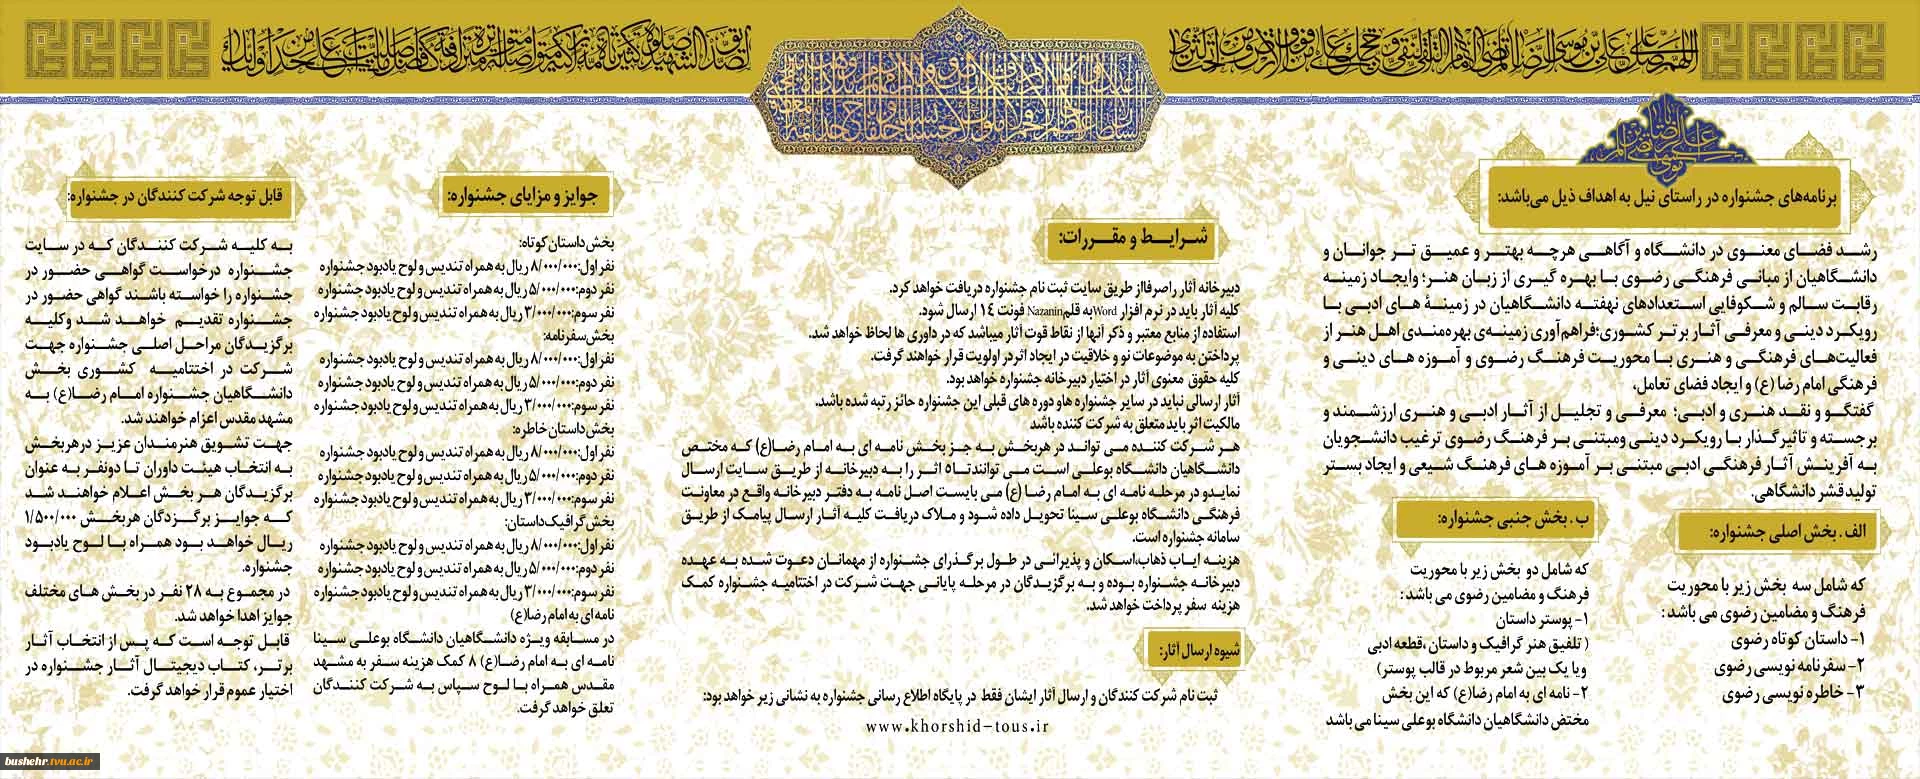 اللهم صل علی علی بن موسی الرضا المرتضی الامام التقی النقی و حجتک علی من فوق الارض و من تحت الثری
الصدیق الشهید صلوة کثیرة تامة زاکیة متواصلة متواترة مترادفة کافضل ما صلیت علی احد من اولیائک
برنامه‌های جشنواره در راستای نیل به اهداف ذیل می‌باشد:
رشد فضای معنوی در دانشگاه و آگاهی هرچه بهتر و عمیق تر جوانان و
دانشگاهیان از مبانی فرهنگی رضوی با بهره گیری از زبان هنر؛ وایجاد زمینه
رقابت سالم و شکوفایی استعدادهای نهفته دانشگاهیان در زمینهٔ های ادبی با
رویکرد دینی و معرفی آثار برتر کشوری؛فراهم‌آوری زمینه‌ی بهره‌مندی اهل هنر از
فعالیت‌های فرهنگی و هنری با محوریت فرهنگ رضوی و آموزه های دینی و
فرهنگی امام رضا (ع) و ایجاد فضای تعامل،
گفتگو و نقد هنری و ادبی؛ معرفی و تجلیل از آثار ادبی و هنری ارزشمند و
برجسته و تاثیرگذار با رویکرد دینی ومبتنی بر فرهنگ رضوی ترغیب دانشجویان
به آفرینش آثار فرهنگی ادبی مبتنی بر آموزه های فرهنگ شیعی و ایجاد بستر
تولیدقشر دانشگاهی.
الف . بخش اصلی جشنواره:
که شامل سه بخش زیر با محوریت
فرهنگ و مضامین رضوی می باشد :
۱- داستان کوتاه رضوی
۲- سفرنامه نویسی رضوی
۳- خاطره نویسی رضوی
ب . بخش جنبی جشنواره:
که شامل دو بخش زیر با محوریت
فرهنگ و مضامین رضوی می باشد :
۱- پوستر داستان
( تلفیق هنر گرافیک و داستان ،قطعه ادبی
ویا یک بین شعر مربوط در قالب پوستر)
۲- نامه ای به امام رضا(ع) که این بخش
مختض دانشگاهیان دانشگاه بوعلی سینا می باشد
شرایط و مقررات:
دبیرخانه آثار راصرفااز طریق سایت ثبت نام جشنواره دریافت خواهد کرد.
کلیه آثار باید در نرم افزار Word به قلم Nazanin فونت ۱۴ ارسال شود.
استفاده از منابع معتبر و ذکر آنها از نقاط قوت آثار میباشد که در داوری ها لحاظ خواهد شد.
پرداختن به موضوعات نو و خلاقیت در ایجاد اثردر اولویت قرار خواهند گرفت.
کلیه حقوق معنوی آثار در اختیار دبیرخانه جشنواره خواهد بود.
آثار ارسالی نباید در سایر جشنواره هاو دوره های قبلی این جشنواره حائز رتبه شده باشد.
مالکیت اثر باید متعلق به شرکت کننده باشد
هر شرکت کننده می تواند در هربخش به جز بخش نامه ای به امام رضا(ع) که مختص
دانشگاهیان دانشگاه بوعلی است می توانندتا۵ اثر را به دبیرخانه از طریق سایت ارسال
نمایدو در مرحله نامه ای به امام رضا (ع) می بایست اصل نامه به دفتر دبیرخانه واقع در معاونت
فرهنگی دانشگاه بوعلی سینا تحویل داده شود و ملاک دریافت کلیه آثار ارسال پیامک از طریق
سامانه جشنواره است.
هزینه ایاب ذهاب،اسکان و پذیرائی در طول برگذرای جشنواره از مهمانان دعوت شده به عهده
دبیرخانه جشنواره بوده و به برگزیدگان در مرحله پایانی جهت شرکت در اختتامیه جشنواره کمک
هزینه سفر پرداخت خواهد شد.
شیوه ارسال آثار:
ثبت نام شرکت کنندگان و ارسال آثار ایشان فقط در پایگاه اطلاع رسانی جشنواره به نشانی زیر خواهد بود:
www.khorshid-tous.ir
جوایز و مزایای جشنواره:
بخش داستان کوتاه:
نفر اول:۸/۰۰۰/۰۰۰ ریال به همراه تندیس و لوح یادبود جشنواره
نفر دوم:۵/۰۰۰/۰۰۰ ریال به همراه تندیس و لوح یادبود جشنواره
نفر سوم:۳/۰۰۰/۰۰۰ ریال به همراه تندیس و لوح یادبود جشنواره
بخش سفرنامه:
نفر اول:۸/۰۰۰/۰۰۰ ریال به همراه تندیس و لوح یادبود جشنواره
نفر دوم:۵/۰۰۰/۰۰۰ ریال به همراه تندیس و لوح یادبود جشنواره
نفر سوم:۳/۰۰۰/۰۰۰ ریال به همراه تندیس و لوح یادبود جشنواره
بخش داستان خاطره:
نفر اول:۸/۰۰۰/۰۰۰ ریال به همراه تندیس و لوح یادبود جشنواره
نفر دوم:۵/۰۰۰/۰۰۰ ریال به همراه تندیس و لوح یادبود جشنواره
نفر سوم:۳/۰۰۰/۰۰۰ ریال به همراه تندیس و لوح یادبود جشنواره
بخش گرافیک داستان:
نفر اول:۸/۰۰۰/۰۰۰ ریال به همراه تندیس و لوح یادبود جشنواره
نفر دوم:۵/۰۰۰/۰۰۰ ریال به همراه تندیس و لوح یادبود جشنواره
نفر سوم:۳/۰۰۰/۰۰۰ ریال به همراه تندیس و لوح یادبود جشنواره
نامه ای به امام رضا(ع)
در مسابقه ویژه دانشگاهیان دانشگاه بوعلی سینا
نامه ای به امام رضا(ع) ۸ کمک هزینه سفر به مشهد
مقدس همراه با لوح سپاس به شرکت کنندگان
تعلق خواهد گرفت.
قابل توجه شرکت کنندگان در جشنواره:
به کلیه شرکت کنندگان که در سایت
جشنواره درخواست گواهی حضور در
جشنواره را خواسته باشند گواهی حضور در
جشنواره تقدیم خواهد شد وکلیه
برگزیدگان مراحل اصلی جشنواره جهت
شرکت در اختتامیه کشوری بخش
دانشگاهیان جشنواره امام رضا(ع) به
مشهد مقدس اعزام خواهند شد.
جهت تشویق هنرمندان عزیز درهربخش
به انتخاب هیئت داوران تا دونفر به عنوان
برگزیدگان هر بخش اعلام خواهند شد
که جوایز برگزدگان هربخش ۱/۵۰۰/۰۰۰
ریال خواهد بود همراه با لوح یادبود
جشنواره.
در مجموع به ۲۸ نفر در بخش های مختلف
جوایز اهدا خواهد شد.
قابل توجه است که پس از انتخاب آثار
برتر، کتاب دیجیتال آثار جشنواره در
اختیار عموم قرار خواهد گرفت.
bushehr.tvu.ac.ir